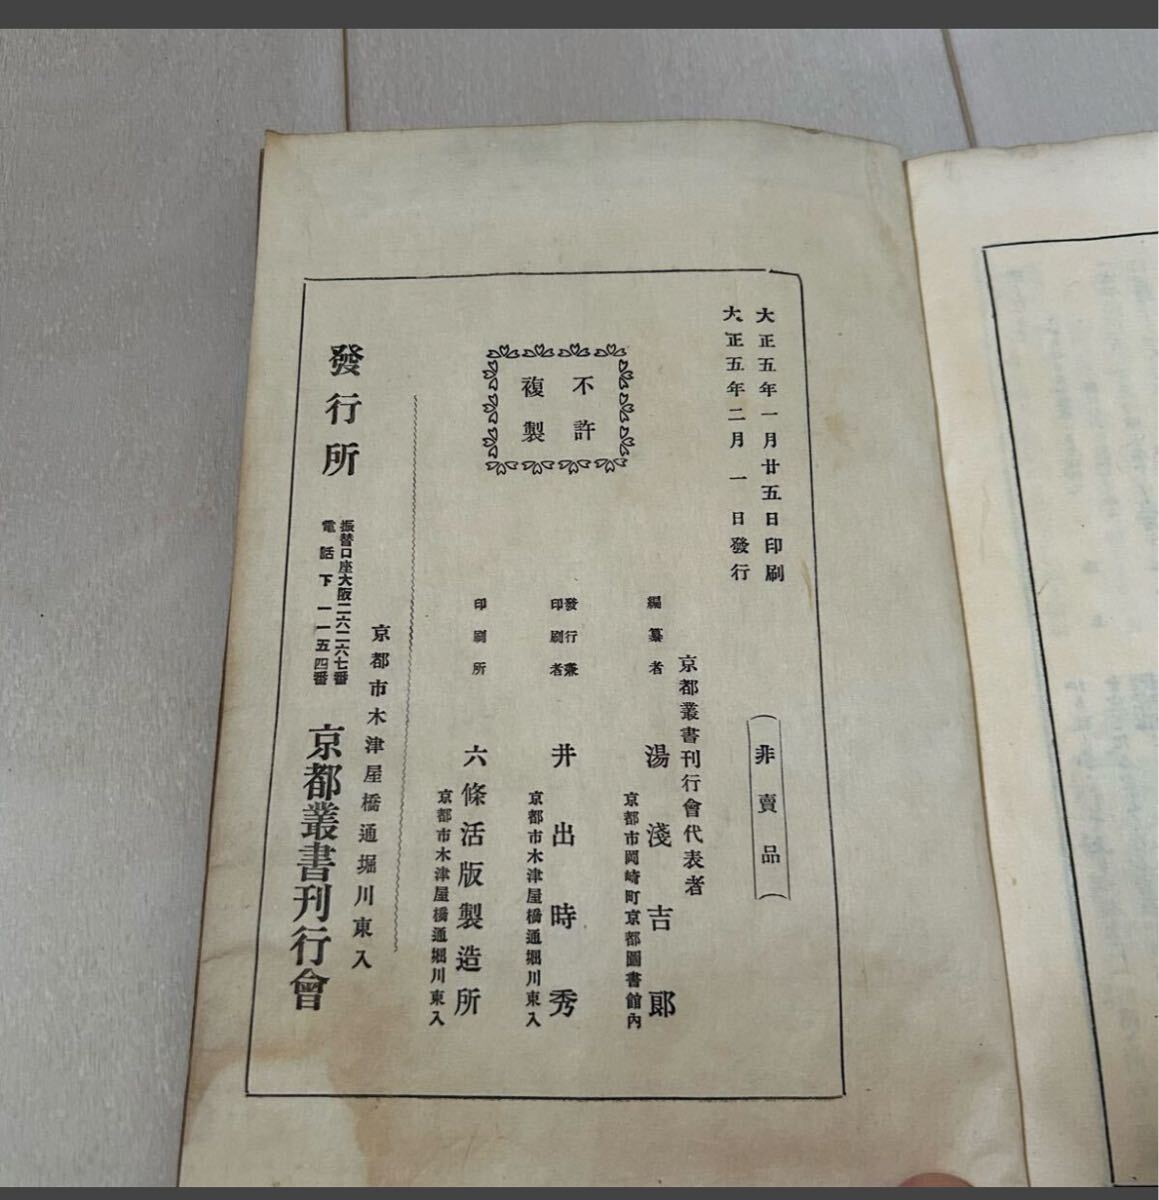 大正五年一月廿五日印刷
大正五年二月一日發行
非賣品
不許
複製
京都叢書刊行會代表者
編纂者 湯淺吉郎
京都市岡崎町京都圖書館內
發行兼
印刷者 井出時秀
京都市木津屋橋通堀川東入
印刷所 六條活版製造所
京都市木津屋橋通堀川東入
京都市木津屋橋通堀川東入
發行所 京都叢書刊行會
振替口座大阪二六二六七番
電話下一一五四番